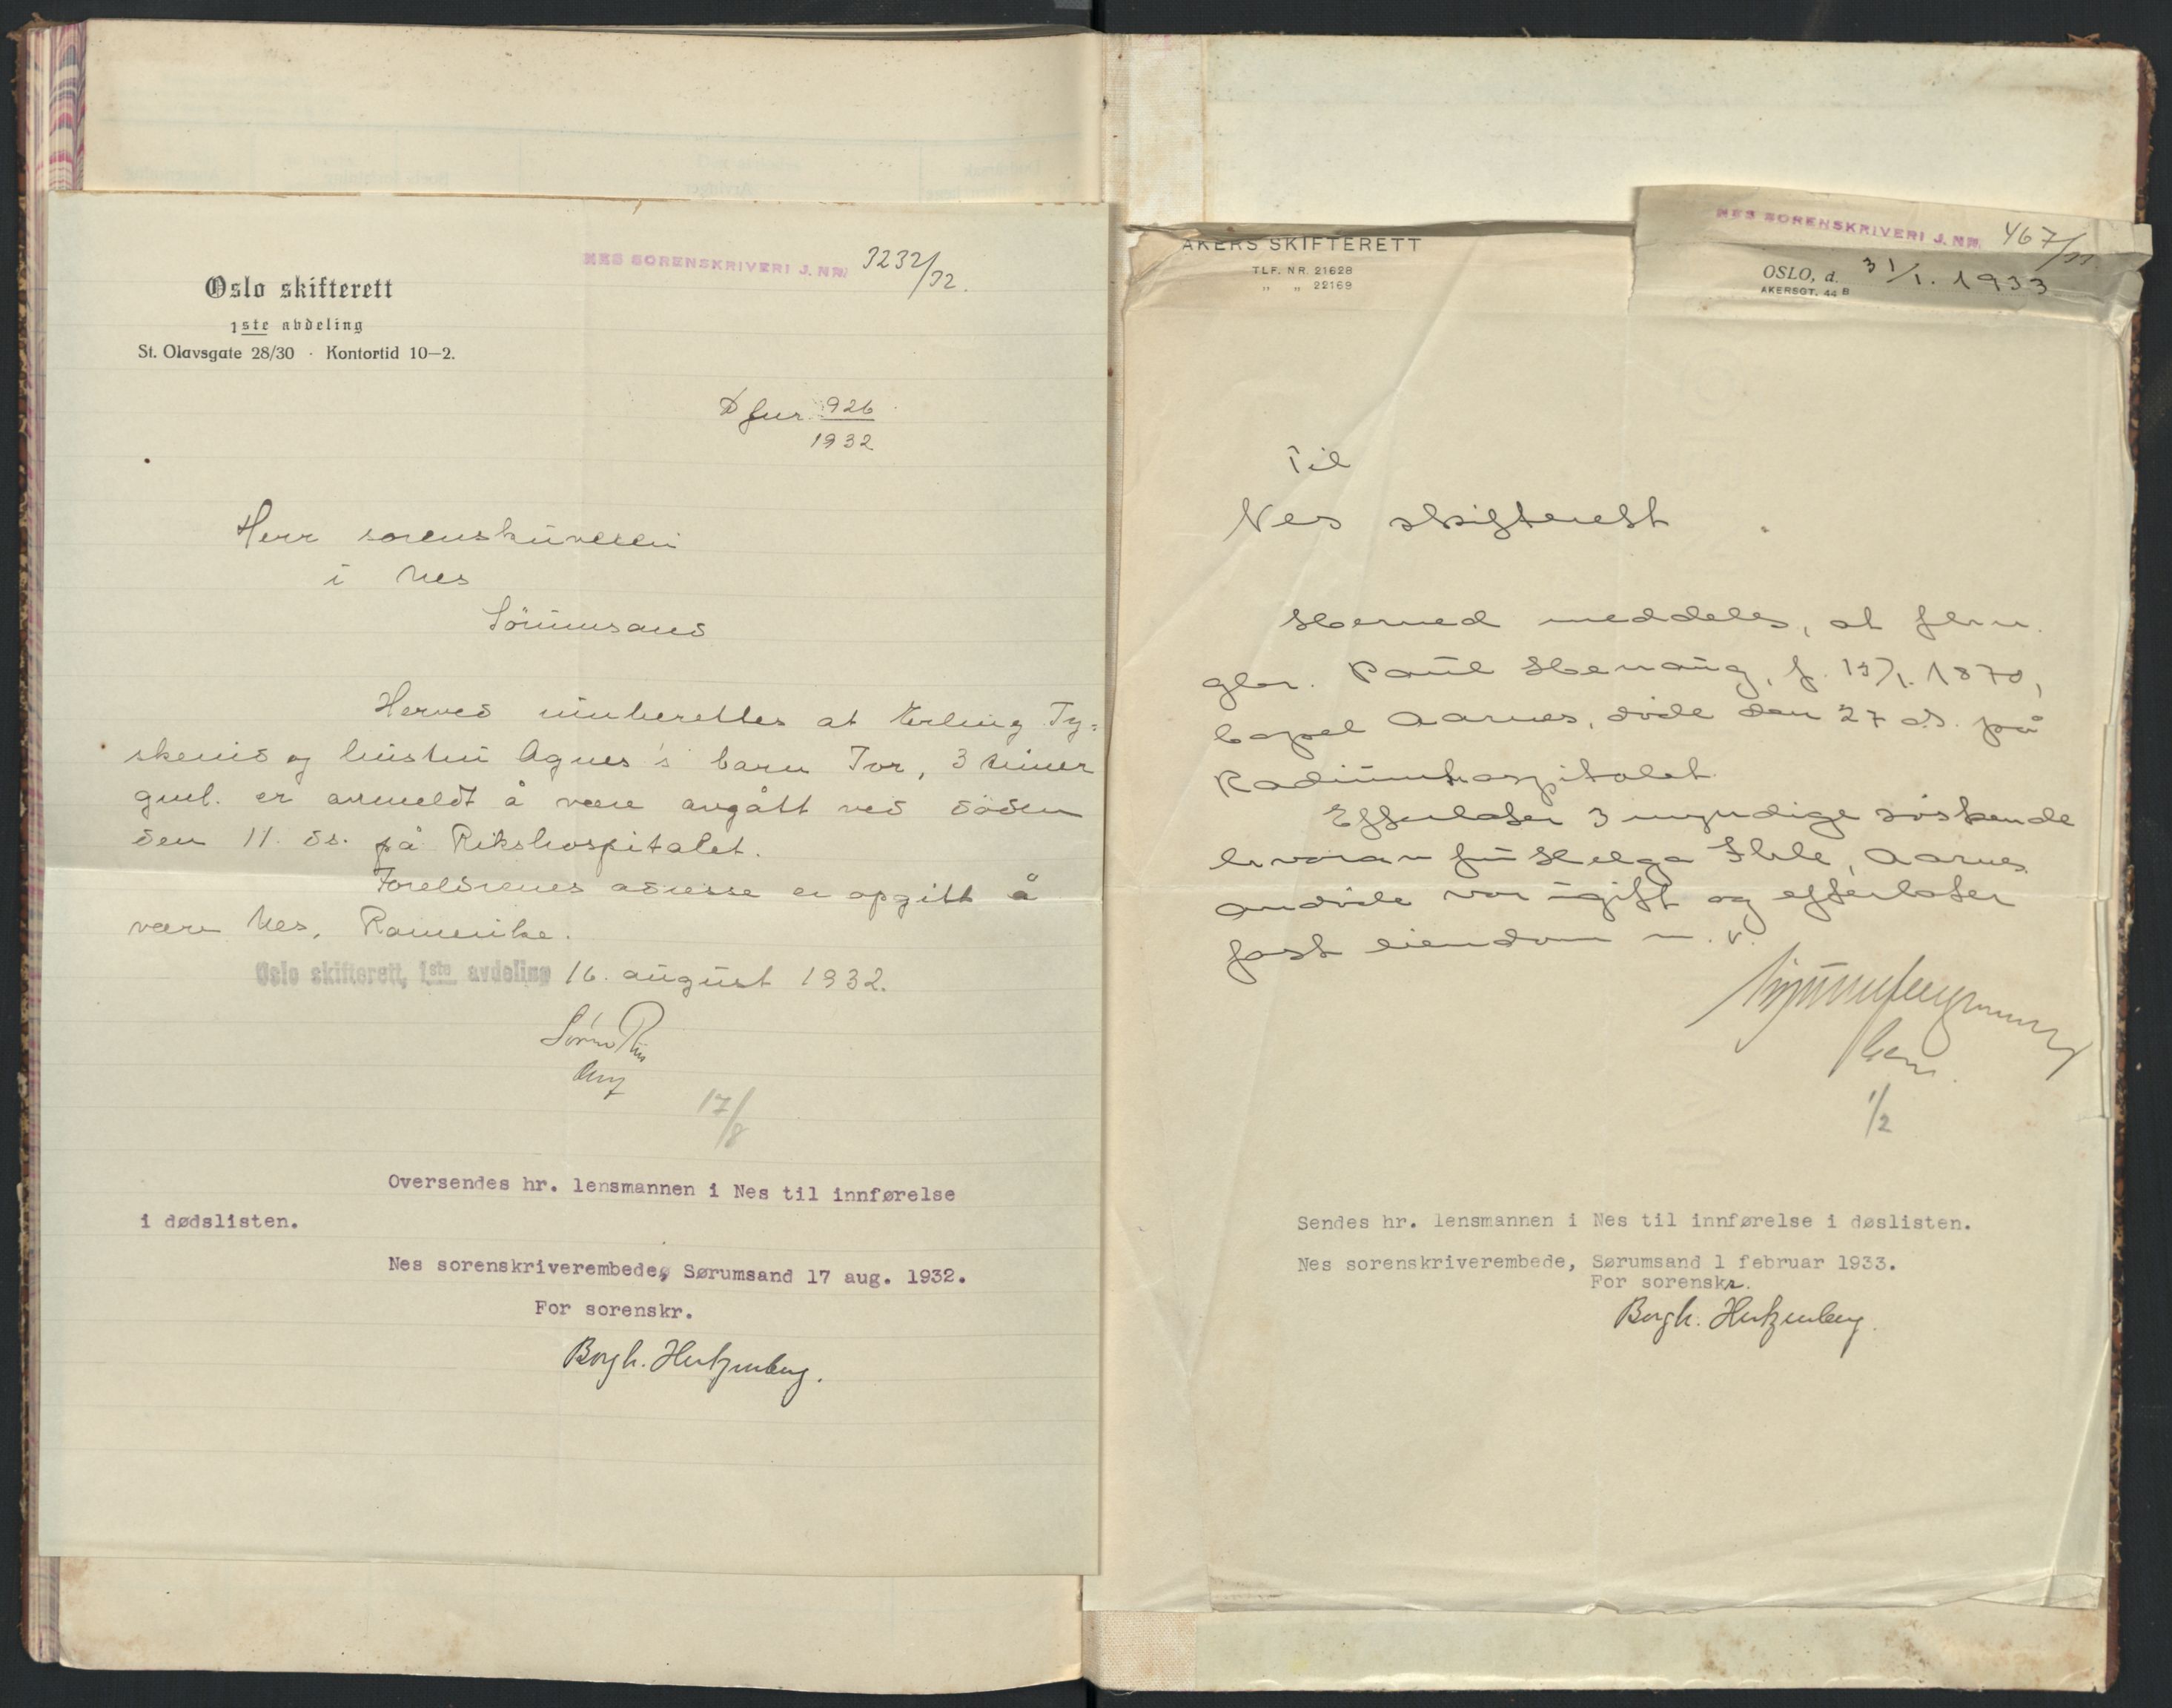 NES SORENSKRIVERI J. NR. 3232/32.
Oslo skifterett
1ste avdeling
St. Olavsgate 28/30 · Kontortid 10—2.
D jur 926
1932
Herr sorenskriveren
i Nes
Sörumsand
Herved innberettes at Erling Ty=
skerud og hustru Agnes's barn Tor, 3 timer
gml. er anmeldt å være avgått ved döden
den 11. ds. på Rikshospitalet.
Foreldrenes adresse er opgitt å
være Nes, Romerike.
Oslo skifterett, 1ste avdeling 16. august 1932.
17/8
Oversendes hr. lensmannen i Nes til innførelse
i dødslisten.
Nes sorenskriverembede, Sørumsand 17 aug. 1932.
For sorenskr.
Borgh. Hertzenberg.
AKERS SKIFTERETT
TLF. NR. 21628
" " 22169
NES SORENSKRIVERI J. NR. 467/33
OSLO, d. 31/1. 1933
AKERSGT. 44 B
Til
Nes skifterett
Herved meddeles, at
Paul f. 1870,
bopel Aarnes, döde den 27 ds. på
Radiumhospitalet.
Efterlater 3 myndige söskende
hvorav fru Helga Aarnes.
Avdöde var ugift og efterlater
fast eiendom m. v.
1/2
Sendes hr. lensmannen i Nes til innførelse i døslisten.
Nes sorenskriverembede, Sørumsand 1 februar 1933.
For sorenskr.
Borgh. Hertzenberg.